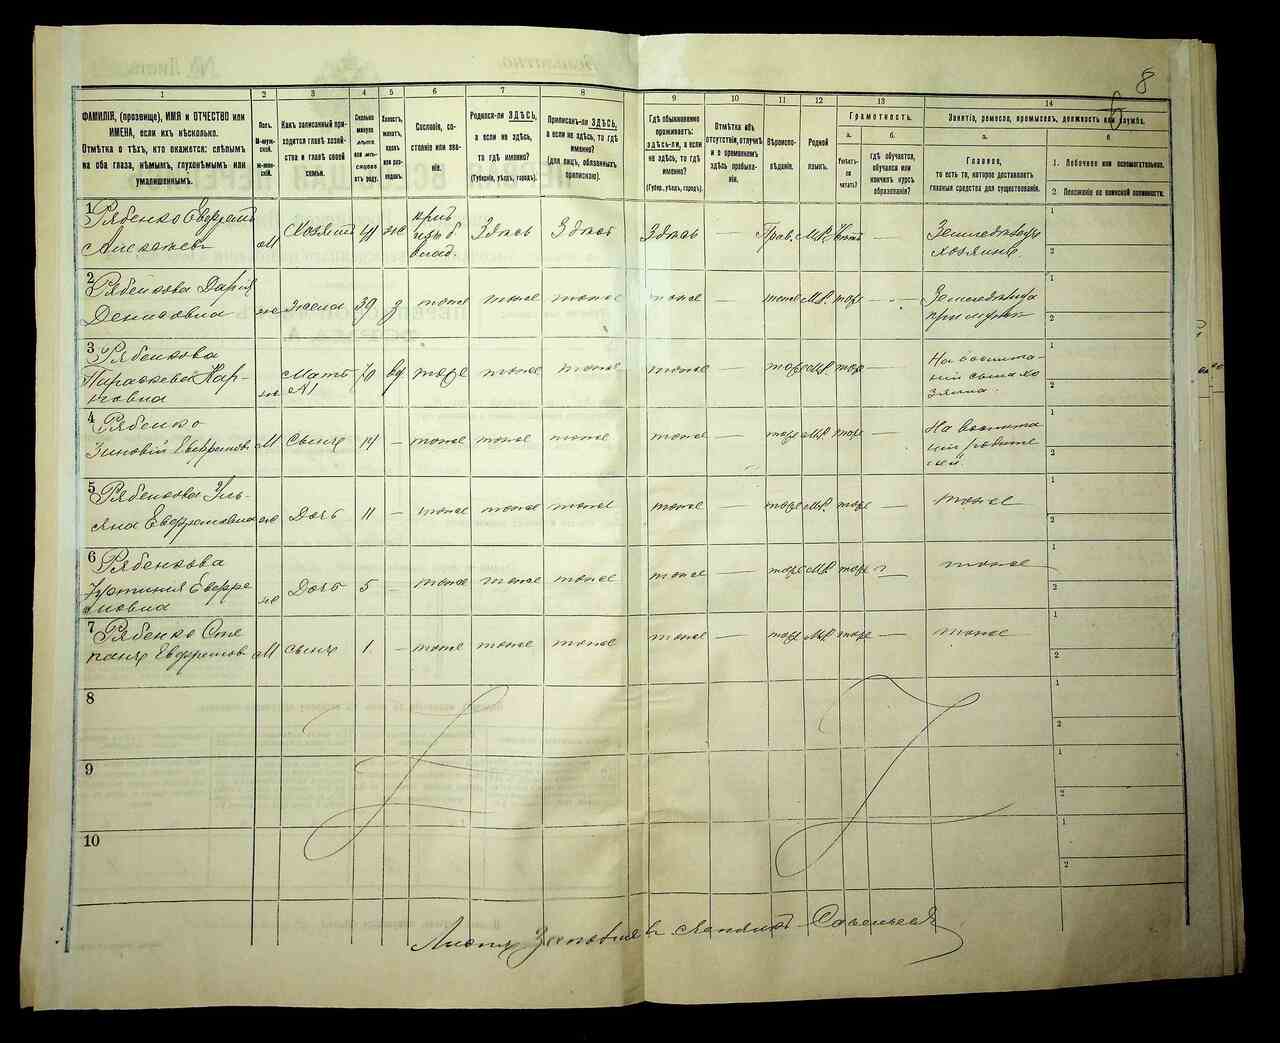 8
1 2 3 4 5 6 7 8 9 10 11 12 13 14
ФАМИЛІЯ, (прозвище), ИМЯ и ОТЧЕСТВО или
ИМЕНА, если ихъ нѣсколько.
Отмѣтка о тѣхъ, кто окажется: слѣпымъ
на оба глаза, нѣмымъ, глухонѣмымъ или
умалишеннымъ.
Полъ.
М-мужской.
ж-женскій.
Какъ записанный приходится
главѣ хозяйства
и главѣ своей
семьи.
Сколько
минуло
лѣтъ
или мѣсяцевъ
отъ роду.
Холостъ,
женатъ,
вдовъ
или разведенъ.
Сословіе, состояніе
или званіе.
Родился-ли ЗДѢСЬ,
а если не здѣсь,
то гдѣ именно?
(Губернія, уѣздъ, городъ).
Приписанъ-ли ЗДѢСЬ,
а если не здѣсь, то гдѣ
именно?
(для лицъ, обязанныхъ
припискою).
Гдѣ обыкновенно
проживаетъ:
здѣсь-ли, а если
не здѣсь, то гдѣ
именно?
(Губер., уѣздъ, городъ).
Отмѣтка объ
отсутствіи, отлучкѣ
и о временномъ
здѣсь пребываніи.
Вѣроисповѣданіе.
Родной
языкъ.
Грамотность.
а.
Умѣетъ-ли
читать?
б.
гдѣ обучается,
обучался или
кончилъ курсъ
образованія?
Занятіе, ремесло, промыселъ, должность или служба.
а.
Главное,
то есть то, которое доставляетъ
главныя средства для существованія.
б
1. Побочное или вспомогательное.
2. Положеніе по воинской повинности.
1 Рябенко Евфремъ
Алексѣевъ М Хозяинъ 41 ж Здѣсь Здѣсь Здѣсь — Прав. МР. Нѣтъ — Земледѣлецъ
хозяинъ.
2 Рябенкова Дарія
Денисовна ж Жена 39 з тоже тоже тоже тоже — тоже МР. тоже —
при мужѣ
3 Рябенкова
Параскева Карповна
ж Мать 70 вд тоже тоже тоже тоже — тоже МР. тоже — На воспитаніи
сына хозяина.
4 Рябенко
Зиновій Евфремов. М Сынъ 14 — тоже тоже тоже тоже — тоже МР. тоже — На воспитаніи
родителей.
5 Рябенкова Ульяна
Евфремовна ж Дочь 11 — тоже тоже тоже тоже — тоже МР. тоже — тоже
6 Рябенкова
Устинія Евфремовна
ж Дочь 5 — тоже тоже тоже тоже — тоже МР. тоже — тоже
7 Рябенко Степанъ
Евфремов М сынъ 1 — тоже тоже тоже тоже — тоже МР. тоже — тоже
8
9
10